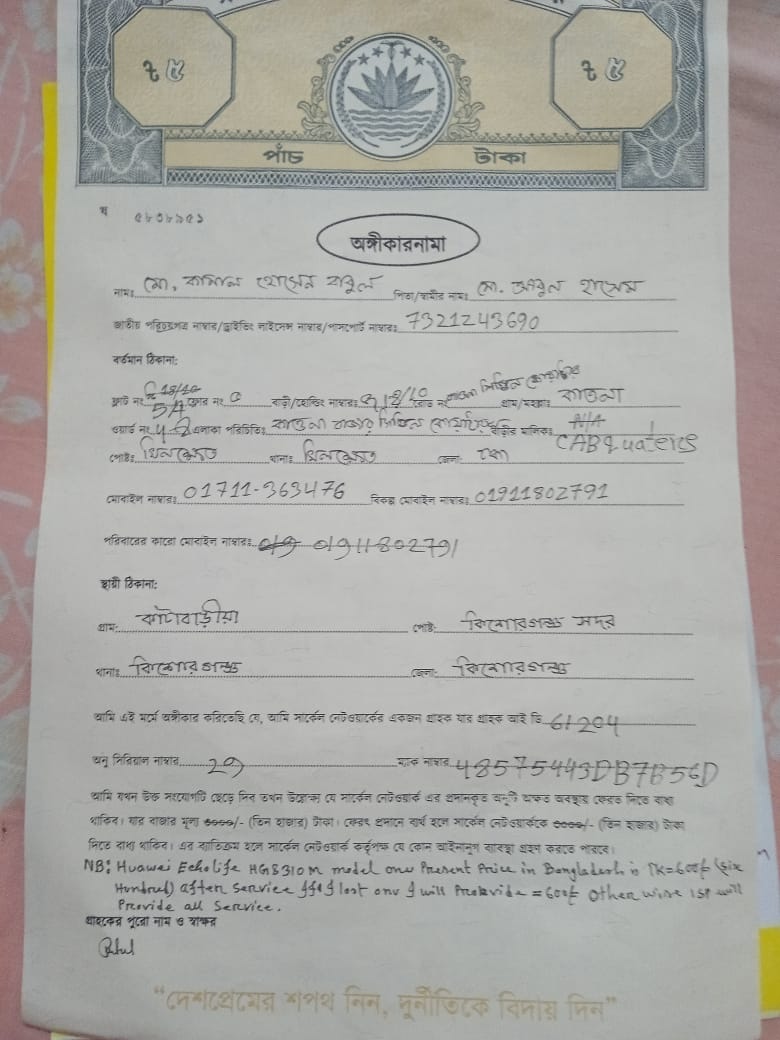 ৳ ৫ ৳ ৫
পাঁচ টাকা
অঙ্গীকারনামা
নামঃ মো. কামাল হোসেন বাবুল পিতা/স্বামীর নামঃ মো. আবুল হাসেম
জাতীয় পরিচয়পত্র নাম্বার/ড্রাইভিং লাইসেন্স নাম্বার/পাসপোর্ট নাম্বারঃ 7321243690
বর্তমান ঠিকানা:
ফ্লাট নং 5A ফ্লোর নং বাড়ী/হোল্ডিং নাম্বারঃ রোড নং সিভিল গ্রাম/মহল্লাঃ কাওলা
ওয়ার্ড নং এলাকা পরিচিতিঃ কাওলা বাজার সিভিল বাড়ীর মালিকঃ CAB quaters
পোষ্টঃ খিলক্ষেত থানাঃ খিলক্ষেত জেলাঃ ঢাকা
মোবাইল নাম্বারঃ 01711-363476 বিকল্প মোবাইল নাম্বারঃ 01911802791
পরিবারের কারো মোবাইল নাম্বারঃ 01911802791
স্থায়ী ঠিকানা:
গ্রামঃ কাটাবাড়ীয়া পোষ্টঃ কিশোরগঞ্জ সদর
থানাঃ কিশোরগঞ্জ জেলাঃ কিশোরগঞ্জ
আমি এই মর্মে অঙ্গীকার করিতেছি যে, আমি সার্কেল নেটওয়ার্কের একজন গ্রাহক যার গ্রাহক আই ডি 61204
অনু সিরিয়াল নাম্বার 29 ম্যাক নাম্বার 48575443DB7B56D
আমি যখন উক্ত সংযোগটি ছেড়ে দিব তখন উল্লেখ্য যে সার্কেল নেটওয়ার্ক এর প্রদানকৃত অনুটি অক্ষত অবস্থায় ফেরত দিতে বাধ্য
থাকিব। যার বাজার মূল্য ৩০০০/- (তিন হাজার) টাকা। ফেরৎ প্রদানে ব্যর্থ হলে সার্কেল নেটওয়ার্ককে ৩০০০/- (তিন হাজার) টাকা
দিতে বাধ্য থাকিব। এর ব্যতিক্রম হলে সার্কেল নেটওয়ার্ক কর্তৃপক্ষ যে কোন আইনানুগ ব্যবস্থা গ্রহণ করতে পারবে।
NB: Huawei Echolife HG8310M model onu Present Price in Bangladesh is TK=600/- (six
Hundred) after service If I lost onu I will Prokvide = 600/- Other wise ISP will
Provide all Service.
গ্রাহকের পুরো নাম ও স্বাক্ষর
"দেশপ্রেমের শপথ নিন, দুর্নীতিকে বিদায় দিন"